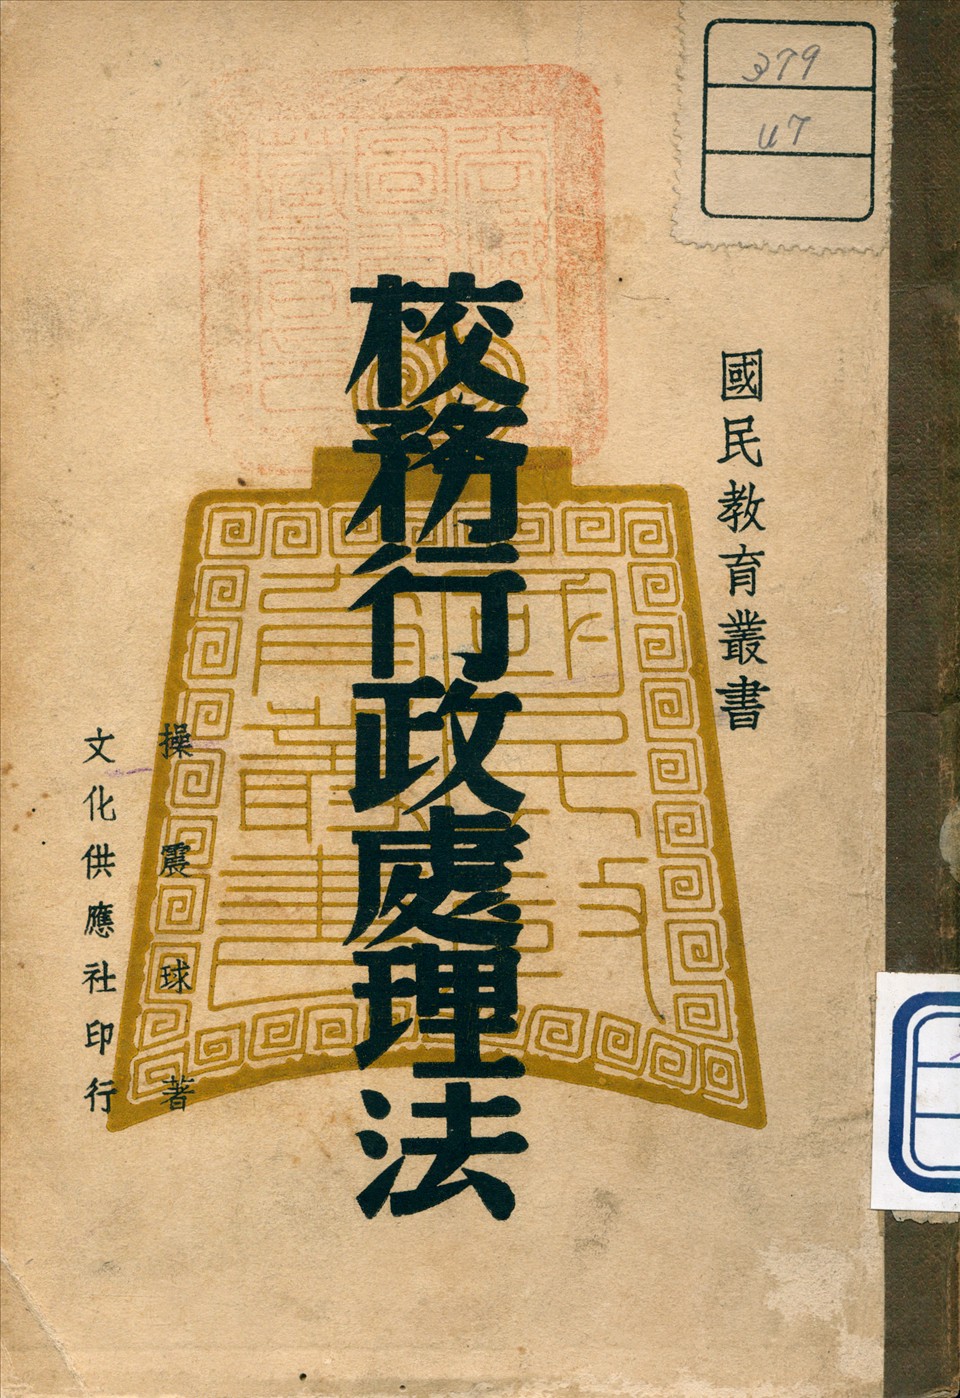 379
U7
國民教育叢書
校務行政處理法
操震球 著
文化供應社印行
國民教
育叢書